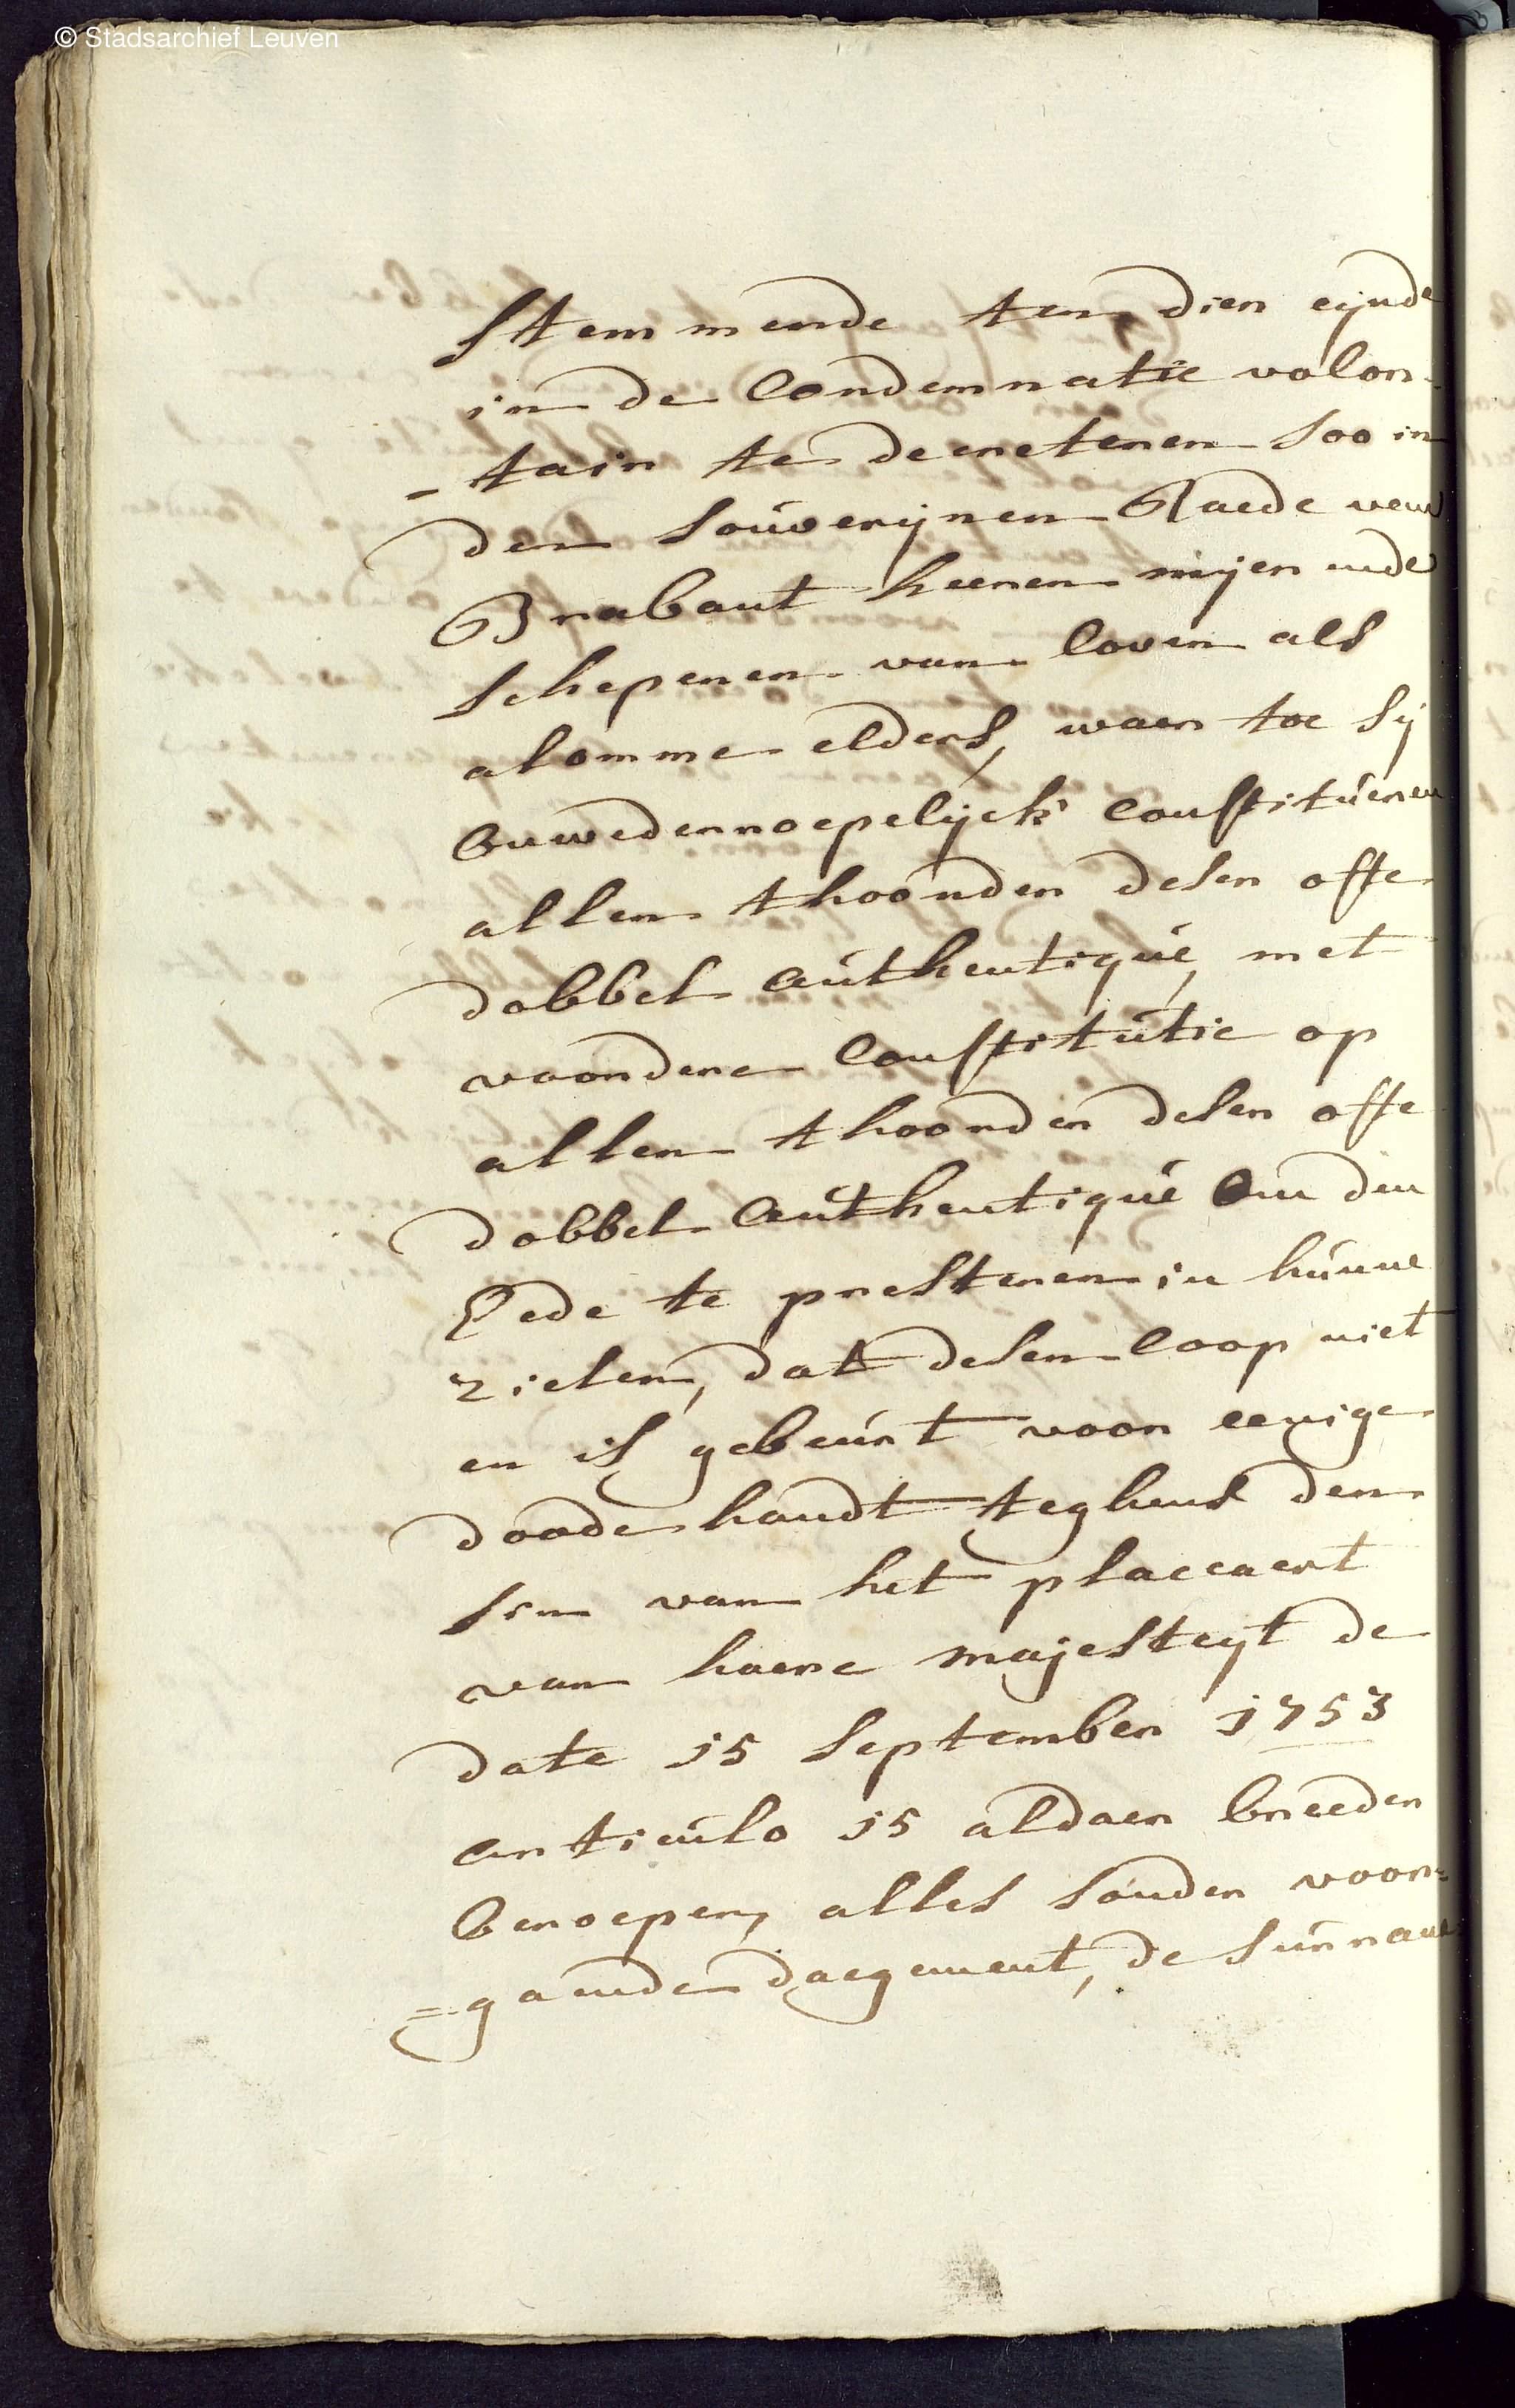 © Stadsarchief Leuven
stemmende ten dien eijnde
in de Condemnatie volon-
-tair te decreteren soo in
den souverijnen Raede van
Brabant heeren meijer ende
schepenen van loven als
alomme elders, waer toe sij
onwederroepelijck constitueren
allen thoonder deser ofte
dobbel authentique, met
voordere Constitutie op
allen thoonder deser ofte
dobbel authentique om den
Eede te presteren in hunne
zielen, dat desen coop niet
en is gebeurt voor eenige
doode handt teghens den
sin van het placcaert
van haere majesteijt de
date 15 september 1753
articulo 15 aldaer breeder
beroepen, alles sonder voor=
=gaende daegement, de surran